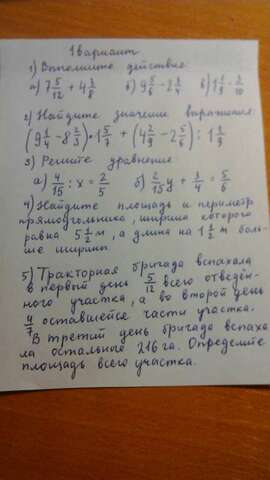 1 вариант
1) Выполните действие
а) 7 5/12 + 4 3/8 б) 9 5/6 - 2 3/4 в) 1 1/9 · 3/10
2) Найдите значение выражения:
(9 1/4 - 8 2/3) · 1 5/7 + (4 2/9 - 2 5/6) : 1 1/9
3) Решите уравнение
а) 4/15 : x = 2/5 б) 2/15 y + 3/4 = 5/6
4) Найдите площадь и периметр
прямоугольника, ширина которого
равна 5 1/2 м, а длина на 1 1/2 м боль-
ше ширины.
5) Тракторная бригада вспахала
в первый день 5/12 всего отведен-
ного участка, а во второй день
4/7 оставшейся части участка.
В третий день бригада вспаха
ла остальные 216 га. Определите
площадь всего участка.